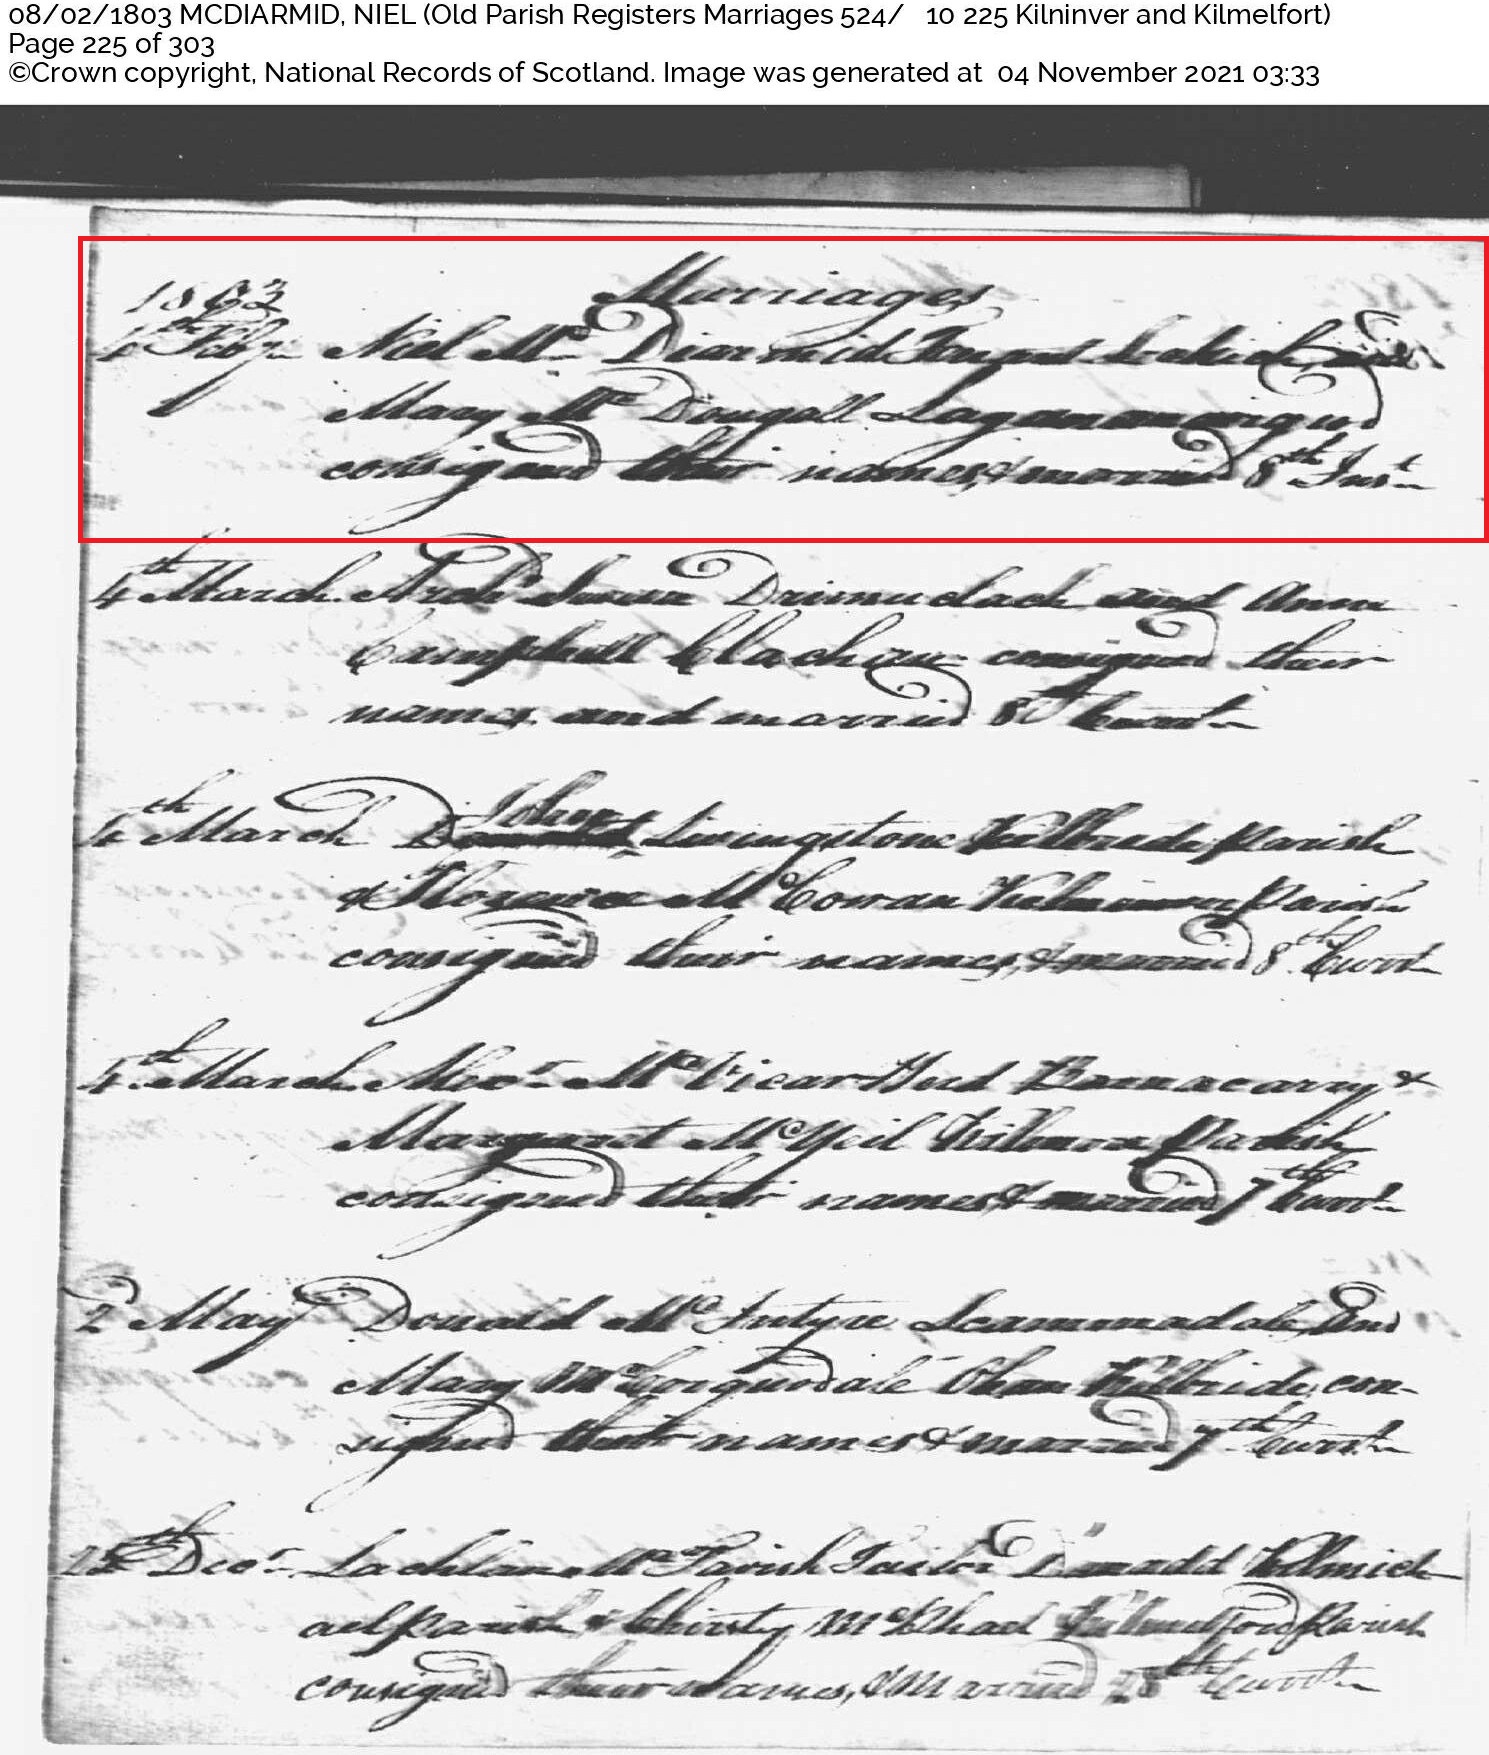 08/02/1803 MCDIARMID, NIEL (Old Parish Registers Marriages 524/ 10 225 Kilninver and Kilmelfort)
Page 225 of 303
©Crown copyright, National Records of Scotland. Image was generated at 04 November 2021 03:33
1803 Marriages
4th Feby Niel Mc Diarmid and
Mary Mc Dougall
consigned their names, & married 8th Inst
4th March Archd Drimuclach and Anne
Campbell Clachan consigned their
names and married 8th Currt
4th March John Livingstone Kilbride Parish
& Florence McCowan Parish
consigned their names, & married 8th Currt
4th March Alexr McVicar Barnacarry &
Margaret McNeil Kilmore Parish
consigned their names & married 7th Currt
2d May Donald McIntyre Scammadale, and
Mary McCorquodale Oban Kilbride, con-
signed their names & married 7th Currt
Decr Lachlan McTavish Tailor Kilmich
ael Parish & Chirsty McPhael Parish
consigned their names, & Married 28th Currt